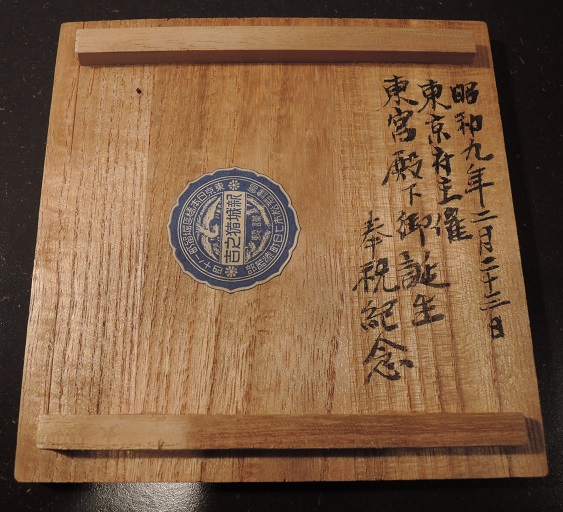 昭和九年二月二十三日
東京府主催
東宮殿下御誕生
奉祝紀念
新城猪之吉